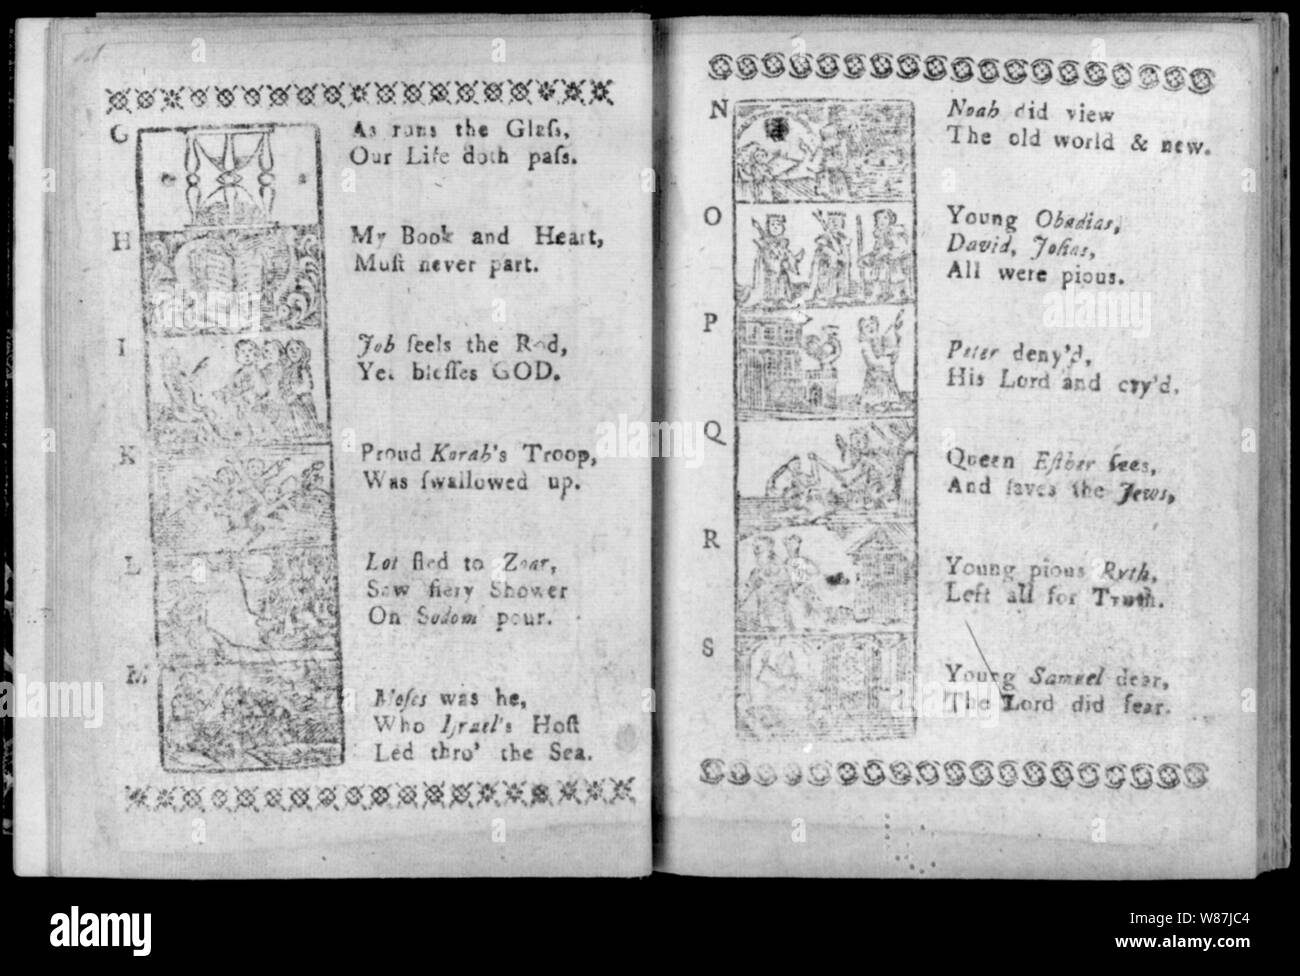 G
As runs the Glaſs,
Our Life doth paſs.
H
My Book and Heart,
Muſt never part.
I
Job feels the Rod,
Yet bleſſes GOD.
K
Proud Korah's Troop,
Was ſwallowed up.
L
Lot fled to Zoar,
Saw fiery Shower
On Sodom pour.
M
Moſes was he,
Who Iſrael's Hoſt
Led thro' the Sea.
N
Noah did view
The old world & new.
O
Young Obadias,
David, Joſias,
All were pious.
P
Peter deny'd,
His Lord and cry'd.
Q
Queen Eſther ſees,
And ſaves the Jews,
R
Young pious Ruth,
Left all for Truth.
S
Young Samuel dear,
The Lord did fear.
alamy
Image ID: W87JC4
www.alamy.com